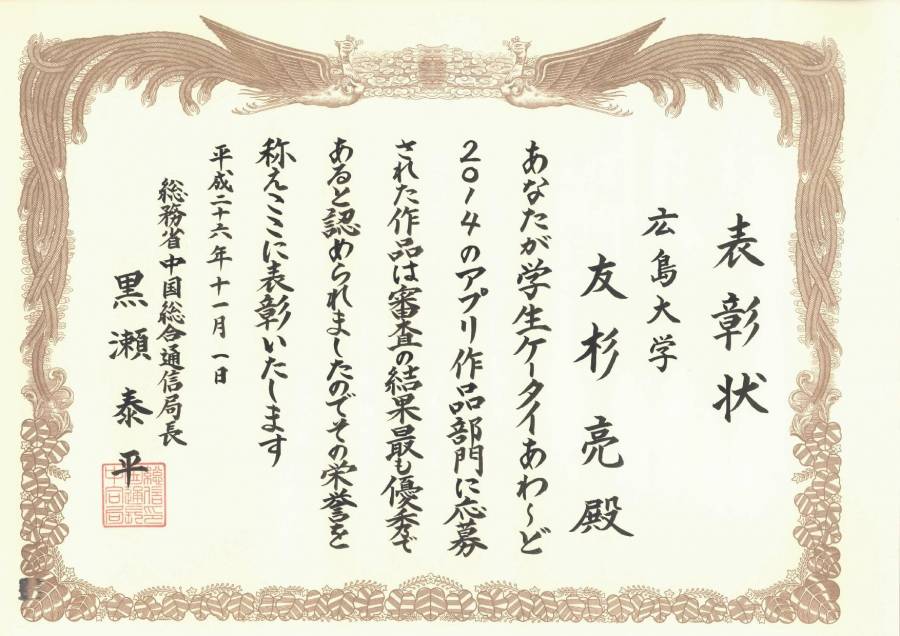 表彰状
広島大学
友杉亮殿
あなたが学生ケータイあわ〜ど
2014のアプリ作品部門に応募
された作品は審査の結果最も優秀で
あると認められましたのでその栄誉を
称えここに表彰いたします
平成二十六年十一月一日
総務省中国総合通信局長
黒瀬泰平